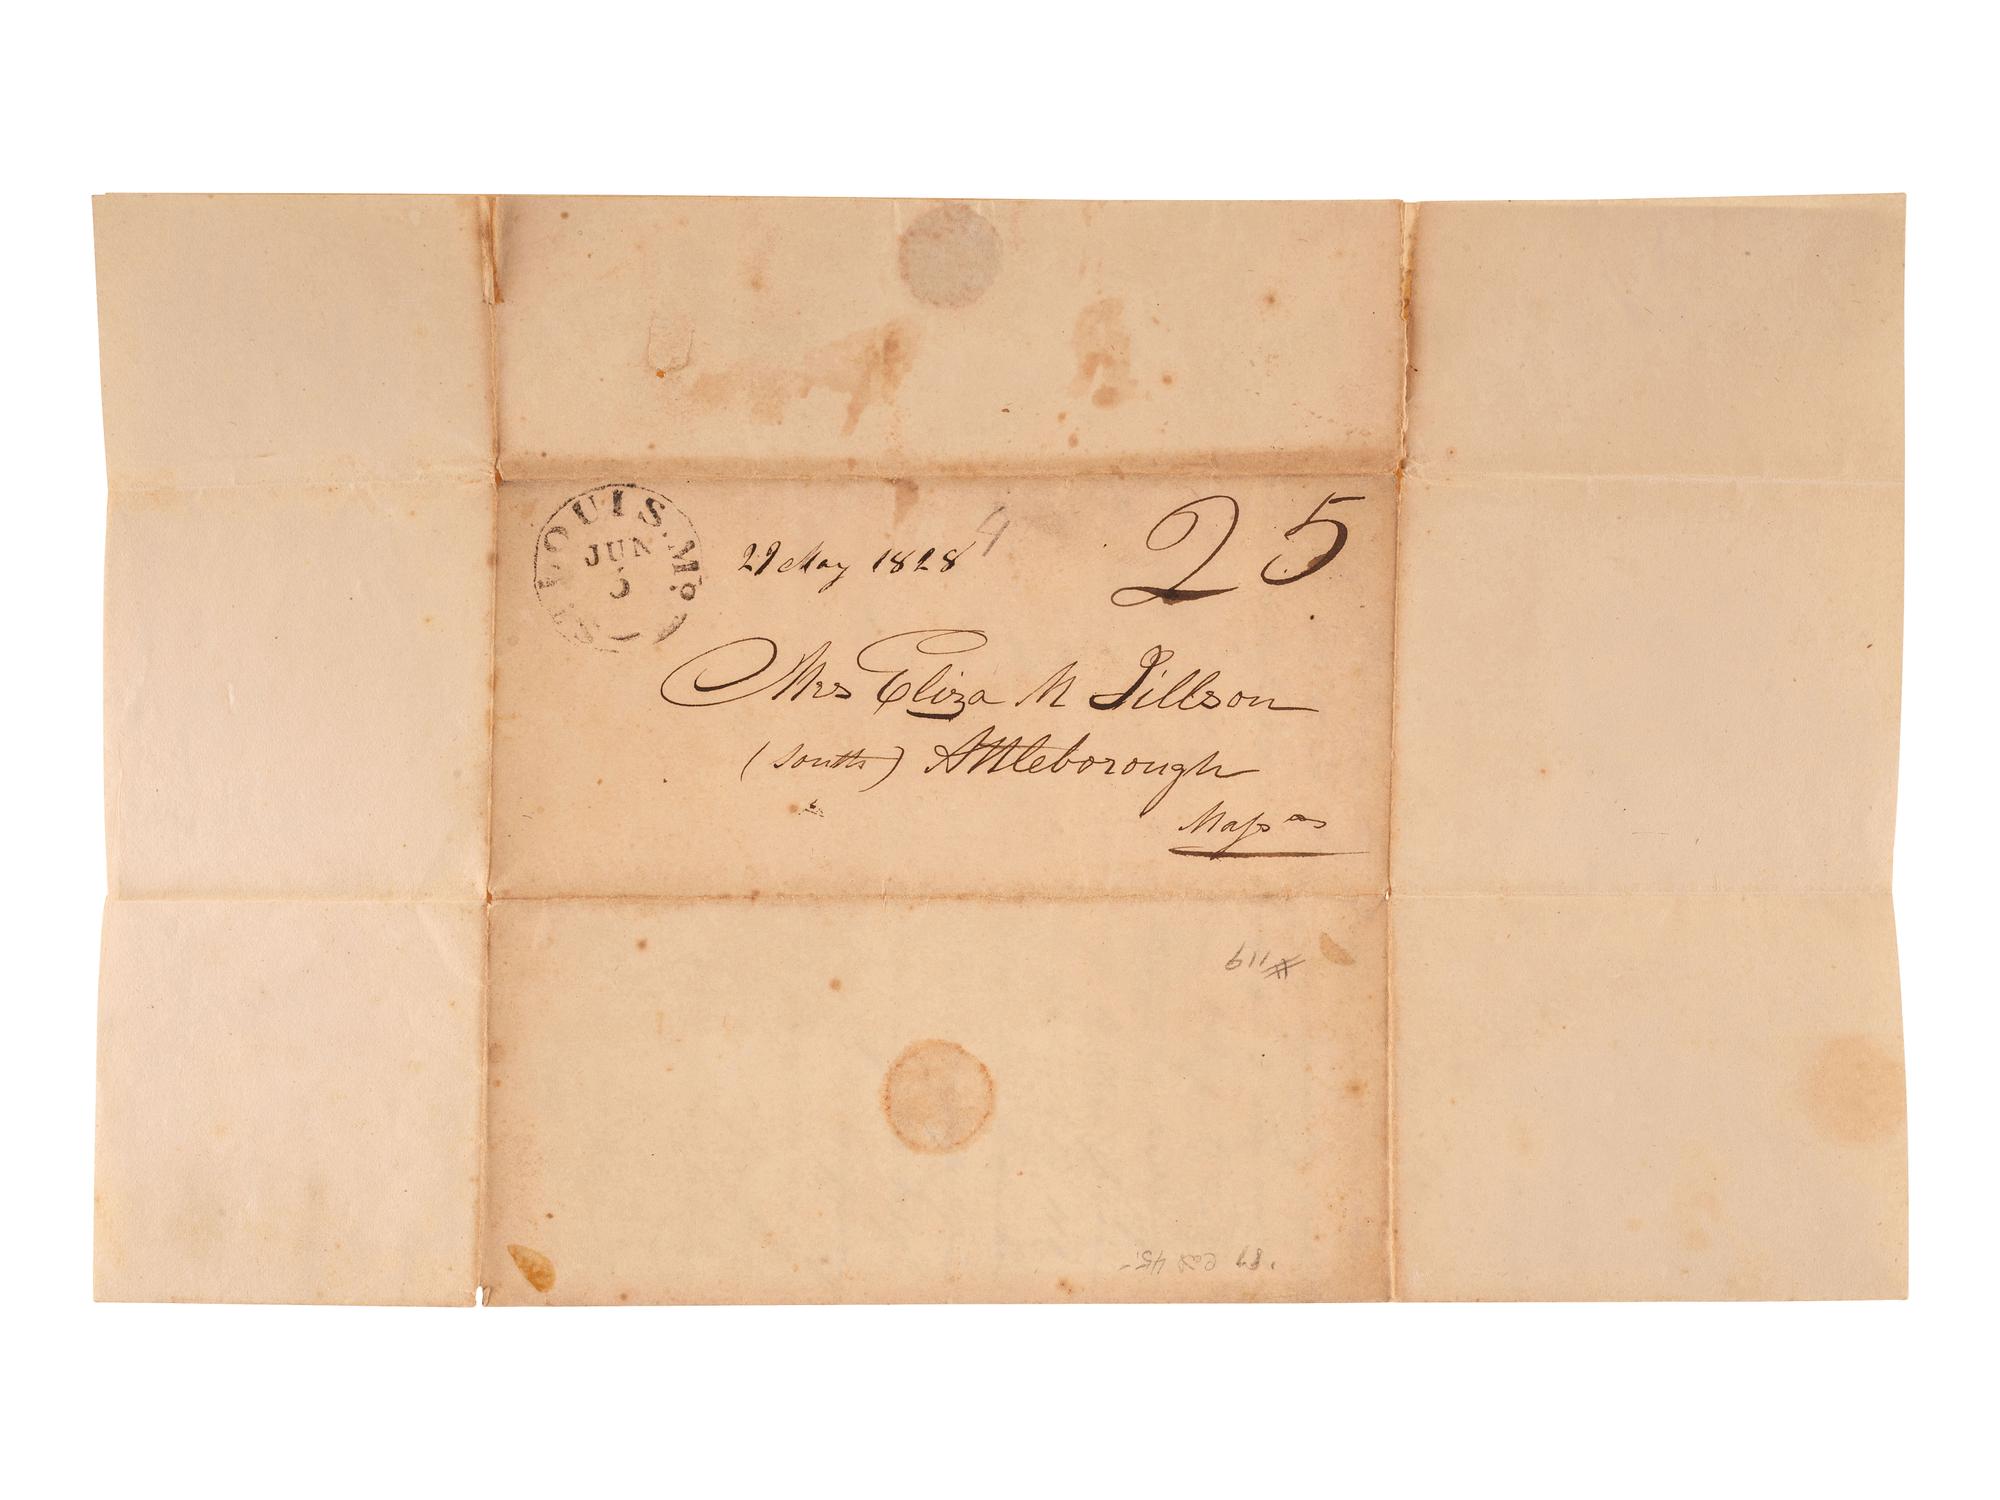 ST. LOUIS. Mo.
JUN
5
29 May 1828
4
25
Mrs Eliza M Tillson
(South) Attleborough
Mass
#119